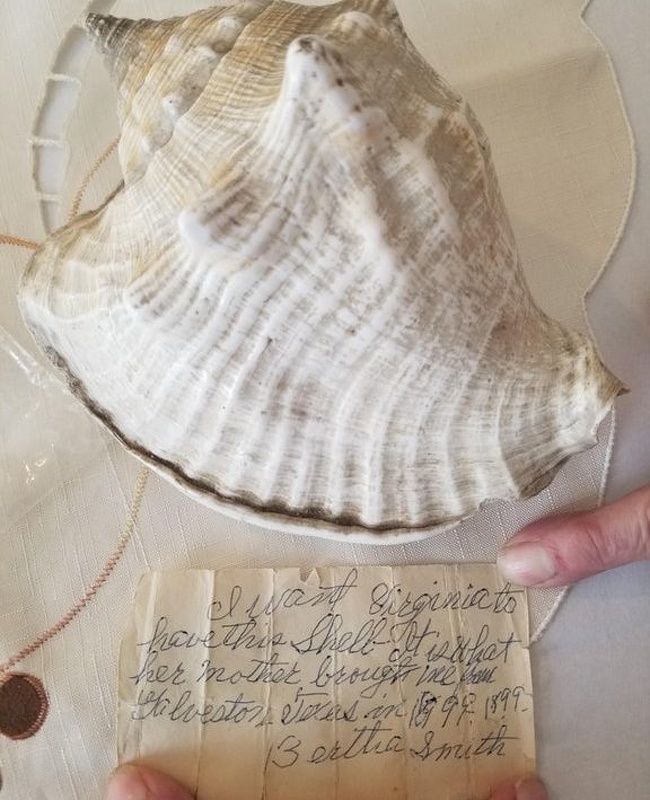 I want Virginia to
have this Shell - It is what
her mother brought me from
Galveston, Texas in 1899. 1899.
Bertha Smith